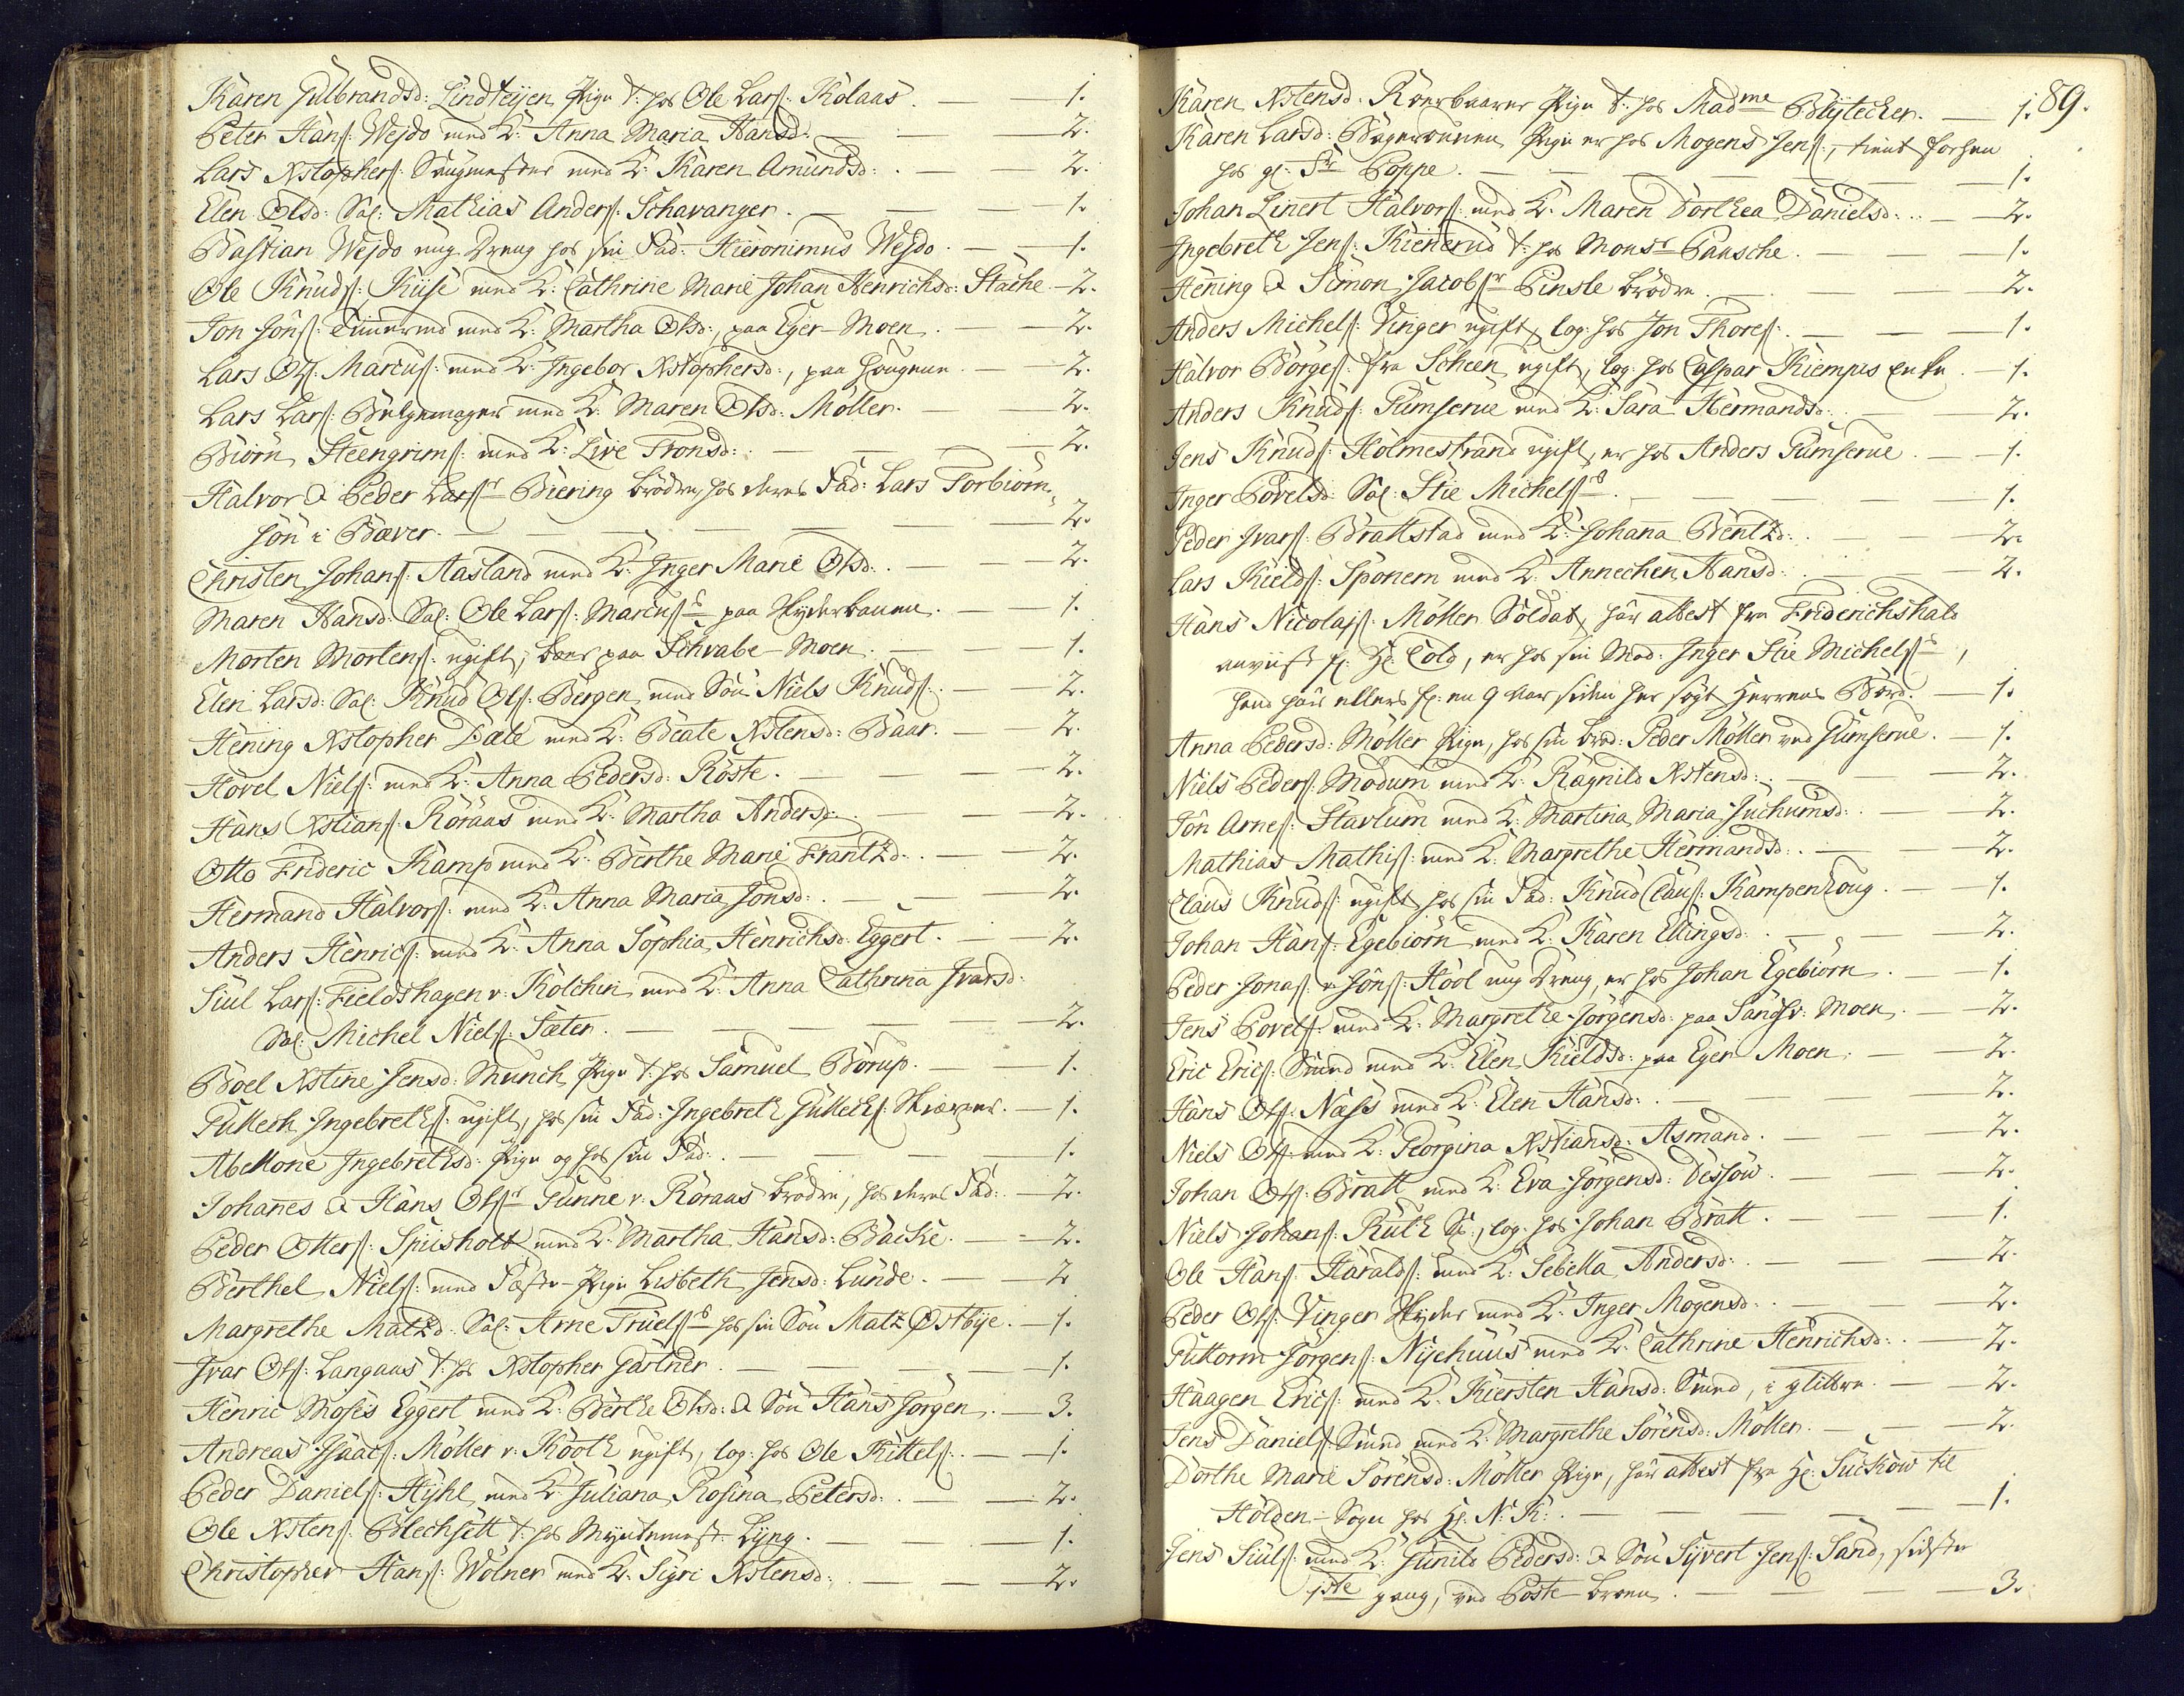 Karen Gulbrandsd: Lindteijen Pige t: hos Ole Lars: Kolaas. — 1.
Peter Hans: Wejdo med K: Anna Maria Hansd: — 2.
Lars Xstophers: Saugmester med K: Karen Amundsd: — 2.
Elen Olsd: Sal: Mathias Anders: Schavanger. — 1.
Bastian Wejdo ung Dreng hos sin Fad: Hieronimus Wejdo. — 1.
Ole Knuds: Kiise med K: Cathrine Marie Johan Henrichsd: Stache — 2.
Jon Jöns: Timermd med K: Martha Olsd:, paa Eger-Moen. — 2.
Lars Ols: Marcus: med K: Ingebor Xstophersd:, paa Hougene. — 2.
Lars Lars: Bælgemager med K: Maren Olsd: Möller. — 2.
Biörn Steengrims: med K: Live Tronsd: — 2.
Halvor & Peder Larssr Biering brödre, hos deres Fad: Lars Torbiörn-
sön i Bæver. — 2.
Christen Johans: Aasland med K: Inger Marie Olsd: — 2.
Maren Hansd: Sal: Ole Lars: Marcuss paa Skyderbanen. — 1.
Morten Mortens: ugift, boer paa Schvabe-Moen. — 1.
Elen Larsd: Sal: Knud Ols: Bergen med Sön Niels Knuds: — 2.
Hening Xstopher Dæle med K: Beate Xstensd: Baar. — 2.
Hovel Niels: med K: Anna Pedersd: Röste. — 2.
Hans Xstians: Röraas med K: Martha Andersd: — 2.
Otto Frideric Kamp med K: Berthe Marie Frantzd: — 2.
Hermand Halvors: med K: Anna Maria Jonsd: — 2.
Anders Henrics: med K: Anna Sophia Henrichsd: Eggert. — 2.
Siul Lars: Fieldshagen v. Kolchin med K: Anna Cathrina Ivarsd:
Sal: Michel Niels: Sæter. — 2.
Boel Xstine Jensd: Munch Pige t: hos Samuel Borup. — 1.
Gullech Ingebreths: ugift, hos sin Fad: Ingebreth Gullechs: — 1.
Abellone Ingebrethsd: Pige og hos sin Fad: — 1.
Johanes & Hans Olssr Gunne v. Röraas brödre, hos deres Fad: — 2.
Peder Otters: Spiisholt med K: Martha Hansd: Backe. — 2.
Berthel Niels: med Fæste-Pige Lisbeth Jensd: Lunde. — 2
Margrethe Matzd: Sal: Arne Truelss hos sin Sön Matz Östbÿe. — 1.
Ivar Ols: Langaas t: hos Xstopher Gartner. — 1.
Henric Moses Eggert med K: Berthe Olsd: & Sön Hans Jörgen. — 3.
Andreas Isaacs: Möller v. Kooth ugift, log: hos Ole Kittels: — 1.
Peder Daniels: Hÿhl med K: Juliana Rosina Petersd: — 2.
Ole Xstens: Blechsett t: hos Myntmest: Lÿng. — 1.
Christopher Hans: Wolner med K: Sigri Xstensd: — 2.
89.
Karen Xstensd: Pige t: hos Madme Blÿtecker. — 1.
Karen Larsd: Pige er hos Mogens Jens:, tient forhen
hos gl: Sr Poppe. — 1.
Johan Linert Halvors: med K: Maren Dorthea Danielsd: — 2.
Ingebreth Jens: Kienerud t: hos Monsr Paasche. — 1.
Hening & Simon Jacobssr Pinsle brödre. — 2.
Anders Michels: Vinger ugift, log: hos Jon Thores: — 1.
Halvor Börges: fra Scheen ugift, log: hos Caspar Kiempes Enke. — 1.
Anders Knuds: Gumserue med K: Sara Hermandsd: — 2.
Jens Knuds: Holmestrand ugift, er hos Anders Gumserue. — 1.
Inger Povelsd: Sal: Stie Michelss. — 1.
Peder Ivars: Brattstad med K: Johana Bentzd: — 2.
Lars Kields: Sponem med K: Annechen Hansd: — 2.
Hans Nicolajs: Möller Soldat, har attest fra Friderichshald
Hr: Cold, er hos sin Mod: Inger Stie Michelss,
hand har ellers for en 9 aar siden her sögt Herrens Bord. — 1.
Anna Pedersd: Möller Pige, hos sin brod: Peder Möller ved Gumserue. — 1.
Niels Peders: Modum med K: Ragnild Xstensd: — 2.
Jon Arnes: Stavlum med K: Martina Maria Juchumsd: — 2.
Mathias Mathis: med K: Margrethe Hermandsd: — 2.
Claus Knuds: ugift, hos sin Fad: Knud Claus: Kampenhoug. — 1.
Johan Hans: Egebiörn med K: Karen Ellingsd: — 2.
Peder Jonas: v. Jöns: Hool ung Dreng, er hos Johan Egebiörn. — 1.
Jens Povels: med K: Margrethe Jörgensd: paa Sandsv: Moen. — 2.
Eric Erics: Smed med K: Elen Kieldsd: paa Eger Moen. — 2.
Hans Ols: Næss med K: Elen Hansd: — 2.
Niels Ols: med K: Georgina Xstiansd: Asmand. — 2.
Johan Ols: Bratt med K: Eva Jörgensd: Dessow. — 2.
Niels Johans: Ruth Sr:, log: hos Johan Bratt. — 1.
Ole Hans: Haralds: med K: Sebella Andersd: — 2.
Peder Ols: Vinger Skyder med K: Inger Mogensd: — 2.
Guttorm Jörgens: Nÿehuus med K: Cathrine Henrichsd: — 2.
Haagen Erics: med K: Kiersten Hansd: Smed, i glittre. — 2.
Jens Daniels: Smed med K: Margrethe Sörensd: Möller. — 2.
Dorthe Marie Sörensd: Möller Pige, har attest fra Hr: Suckow til
Holden-Sogn hos Hr: N: K: — 1.
Jens Siuls: med K: Gunild Pedersd: & Sön Sÿvert Jens: Sand, sidste
1ste gang, ved Poste-broen. — 3.